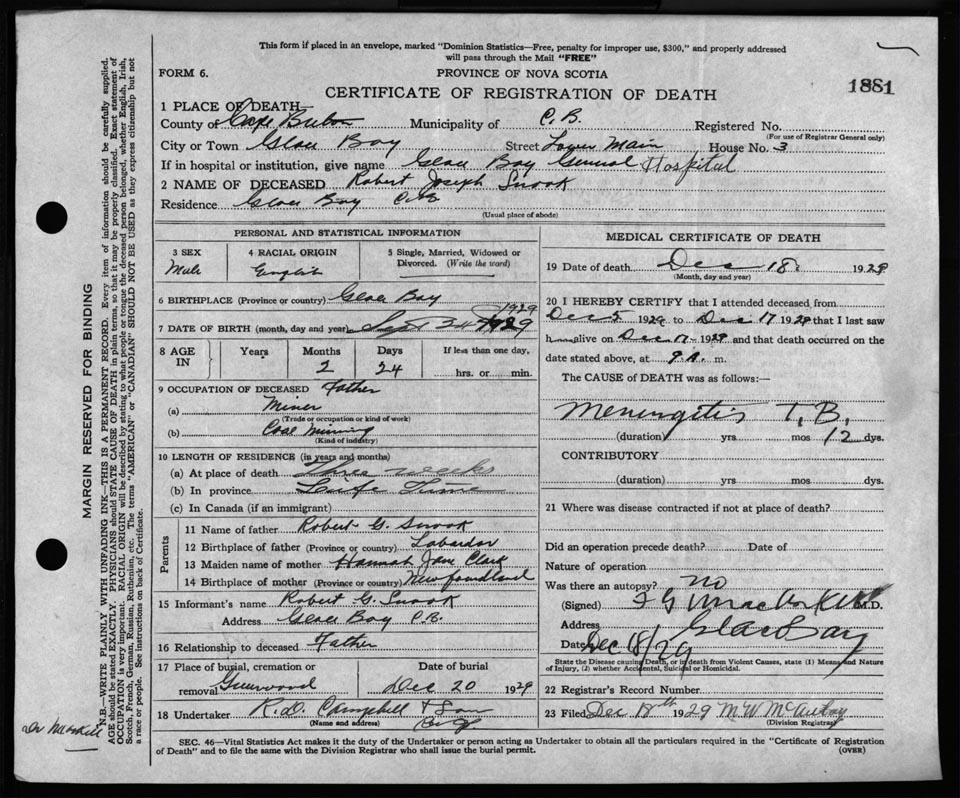 This form if placed in an envelope, marked "Dominion Statistics—Free, penalty for improper use, $300," and properly addressed
will pass through the Mail "FREE"
FORM 6.
PROVINCE OF NOVA SCOTIA
CERTIFICATE OF REGISTRATION OF DEATH
1881
1 PLACE OF DEATH—
County of Cape Breton Municipality of C.B. Registered No.
(For use of Registrar General only)
City or Town Glace Bay Street Lower Main House No. 3
If in hospital or institution, give name Glace Bay General Hospital
2 NAME OF DECEASED Robert Joseph Snook
Residence Glace Bay C.B.
(Usual place of abode)
PERSONAL AND STATISTICAL INFORMATION
3 SEX Male
4 RACIAL ORIGIN English
5 Single, Married, Widowed or Divorced. (Write the word)
6 BIRTHPLACE (Province or country) Glace Bay
1929
7 DATE OF BIRTH (month, day and year) Sept 24 1929
8 AGE IN Years Months 2 Days 24 If less than one day, hrs. or min.
9 OCCUPATION OF DECEASED Father
(a) Miner
(Trade or occupation or kind of work)
(b) Coal Mining
(Kind of industry)
10 LENGTH OF RESIDENCE (in years and months)
(a) At place of death Three weeks
(b) In province Life Time
(c) In Canada (if an immigrant)
Parents
11 Name of father Robert G. Snook
12 Birthplace of father (Province or country) Labardor
13 Maiden name of mother Hannah Jane Clark
14 Birthplace of mother (Province or country) Newfoundland
15 Informant's name Robert G. Snook
Address Glace Bay C.B.
16 Relationship to deceased Father
17 Place of burial, cremation or removal Greenwood
Date of burial Dec 20 1929
18 Undertaker K.D. Campbell & Son
(Name and address)
MEDICAL CERTIFICATE OF DEATH
19 Date of death Dec 18 1929
(Month, day and year)
20 I HEREBY CERTIFY that I attended deceased from
Dec 5 1929 to Dec 17 1929 that I last saw
h alive on Dec 17 1929 and that death occurred on the
date stated above, at 9 A. m.
The CAUSE of DEATH was as follows:—
Meningitis T.B.
(duration) yrs mos 12 dys.
CONTRIBUTORY
(duration) yrs mos dys.
21 Where was disease contracted if not at place of death?
Did an operation precede death? Date of
Nature of operation
Was there an autopsy? no
(Signed) M.D.
Address Glace Bay
Date Dec 18/29
State the Disease causing Death, or in death from Violent Causes, state (1) Means and Nature
of Injury, (2) whether Accidental, Suicidal or Homicidal.
22 Registrar's Record Number
23 Filed Dec 1929
(Division Registrar)
SEC. 46—Vital Statistics Act makes it the duty of the Undertaker or person acting as Undertaker to obtain all the particulars required in the "Certificate of Registration
of Death" and to file the same with the Division Registrar who shall issue the burial permit.
(OVER)
MARGIN RESERVED FOR BINDING
N.B.—WRITE PLAINLY WITH UNFADING INK—THIS IS A PERMANENT RECORD. Every item of information should be carefully supplied.
AGE should be stated EXACTLY. PHYSICIANS should STATE CAUSE OF DEATH in plain terms, so that it may be properly classified. Exact statement of
OCCUPATION is very important. RACIAL ORIGIN will be described by stating to what people or tongue the deceased person belonged, whether English, Irish,
Scotch, French, German, Russian, Ruthenian, etc. The terms "AMERICAN" or "CANADIAN" SHOULD NOT BE USED as they express citizenship but not
a race or people. See instructions on back of Certificate.